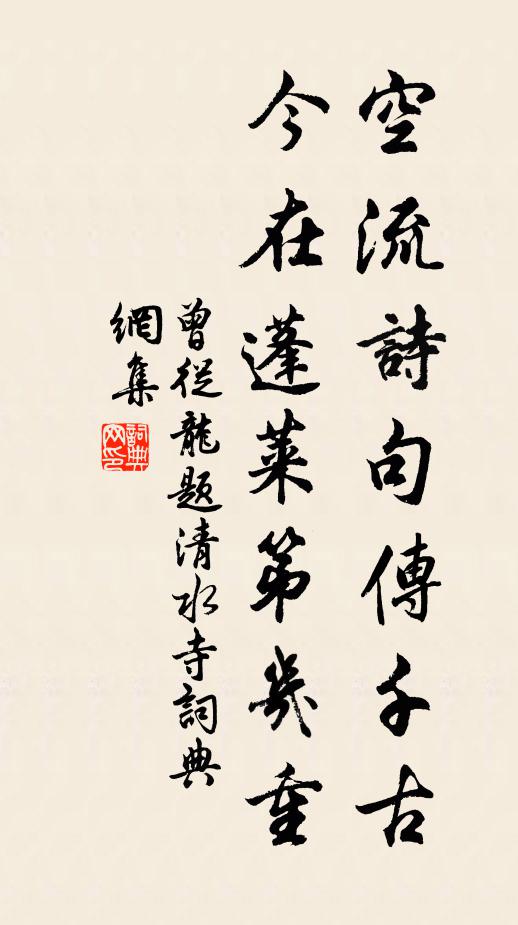 空流詩句傳千古
今在蓬萊第幾重
曾從龍題清水寺詞典
網集
詞典
网印